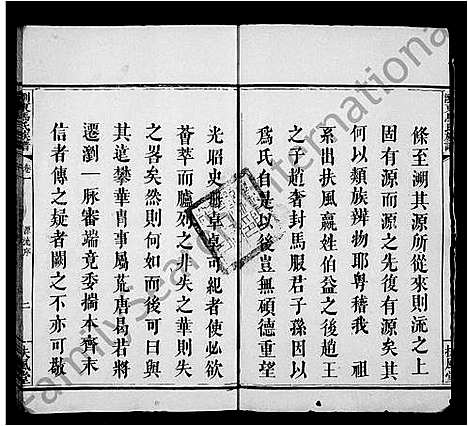 條至溯其源所從來則流之上
固有源而源之先復有源矣其
何以類族辨物耶粵稽我 祖
系出扶風嬴姓伯益之後趙王
之子趙奢封馬服君子孫因以
為氏自是以後豈無碩德重望
光昭史冊卓卓可紀者使必欲
薈萃而臚列之非失之華則失
之畧矣然則何如而後可曰與
其遠攀華胄事屬荒唐曷若將
遷瀏一脉審端竟委揣本齊末
信者傳之疑者闕之不亦可敬
卷一
源流序
二
扶風堂
FamilySearch International